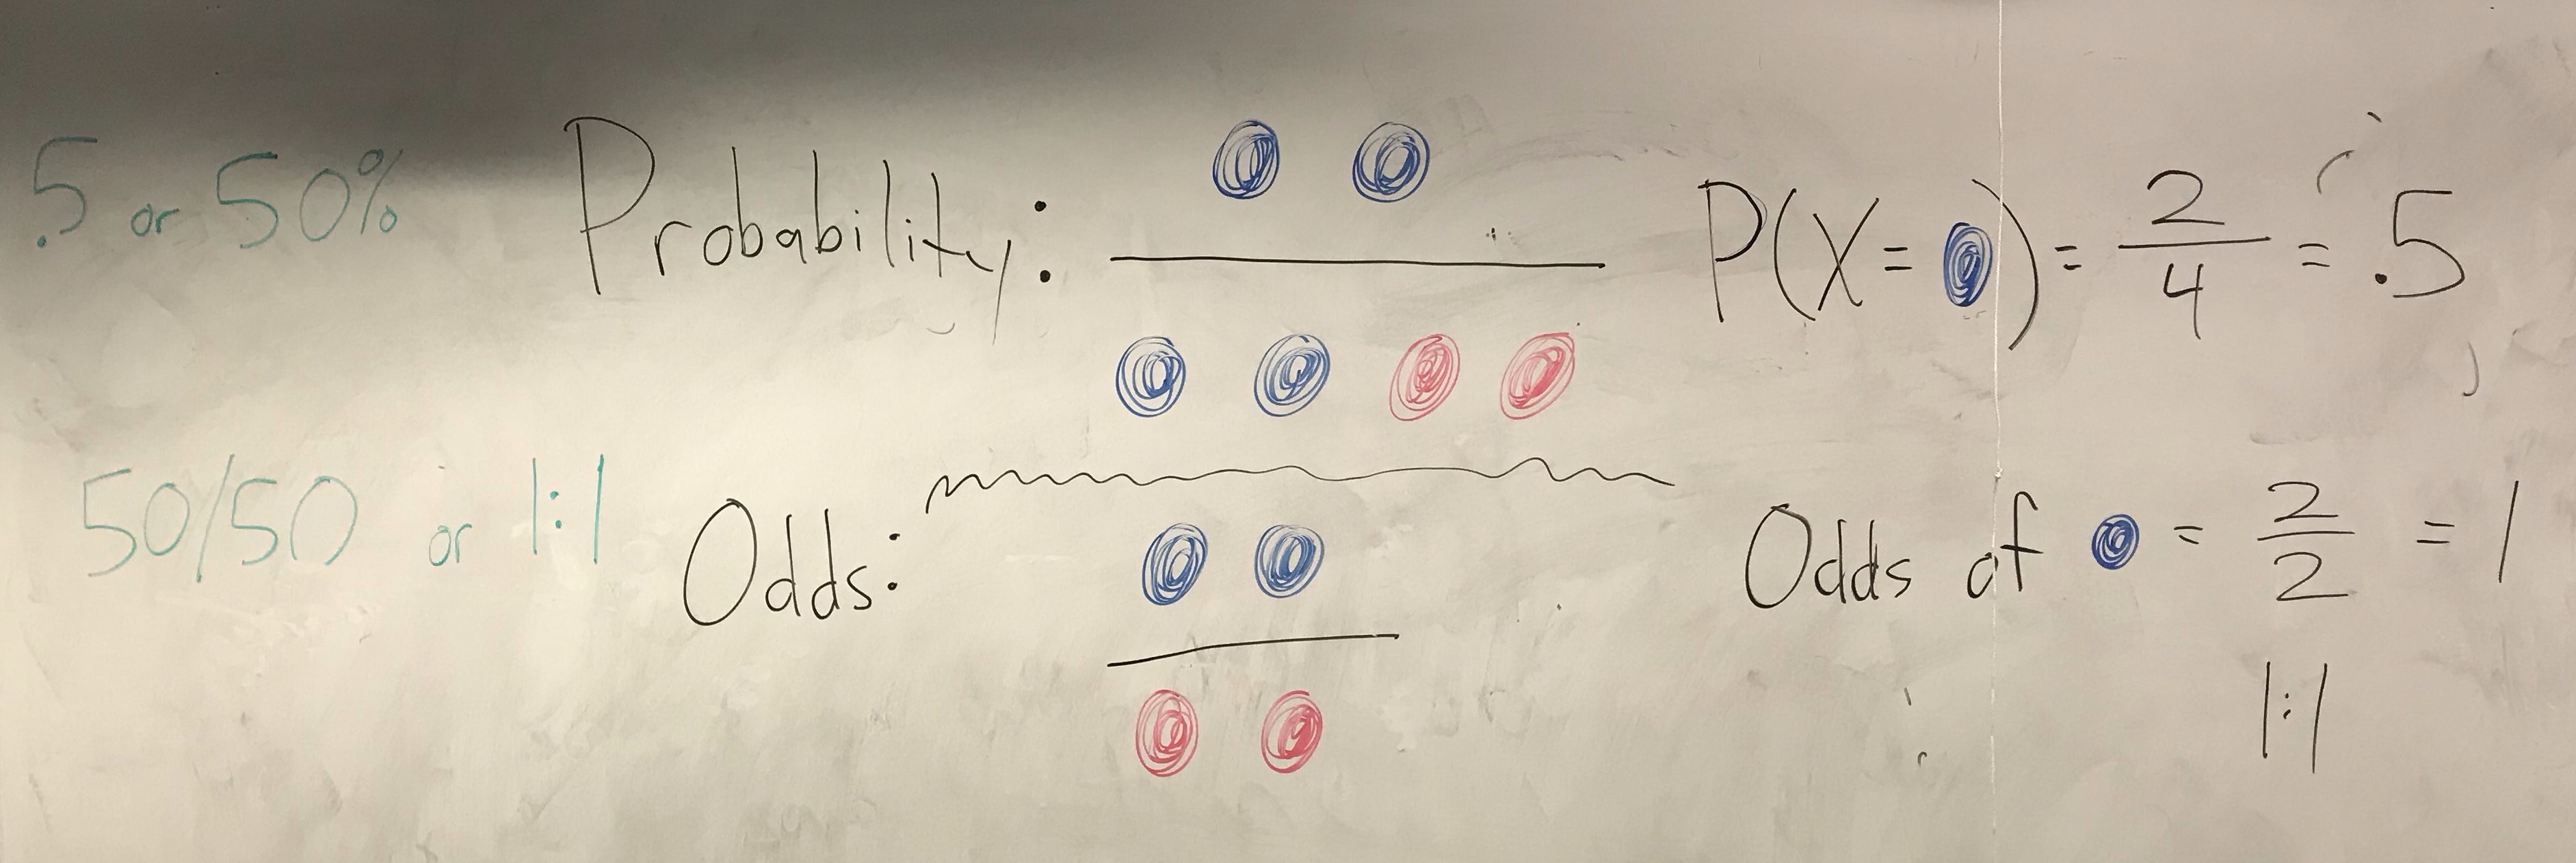 .5 or 50%
Probability:
P(X= )= 2/4 = .5
50/50 or 1:1
Odds:
Odds of = 2/2 = 1
1:1